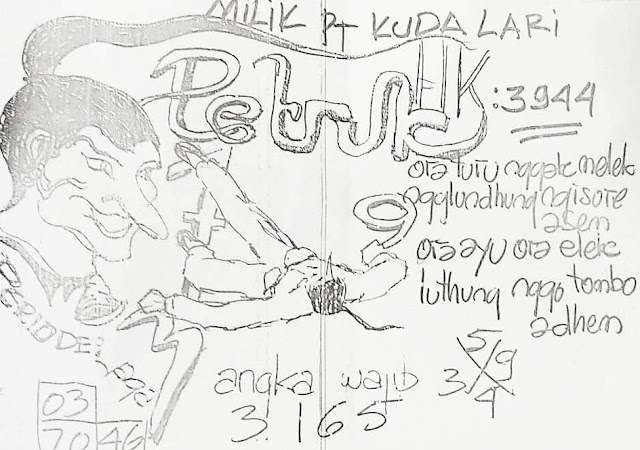 MILIK PT KUDA LARI
Petruk
HK : 3944
ora turu nggak melek
ngglundhung ngisore
asem
ora ayu ora elek
luthung nggo tombo
adhem
9
PERIODE:
03
70 46
angka wajib
3 1 6 5
5/9
3
4